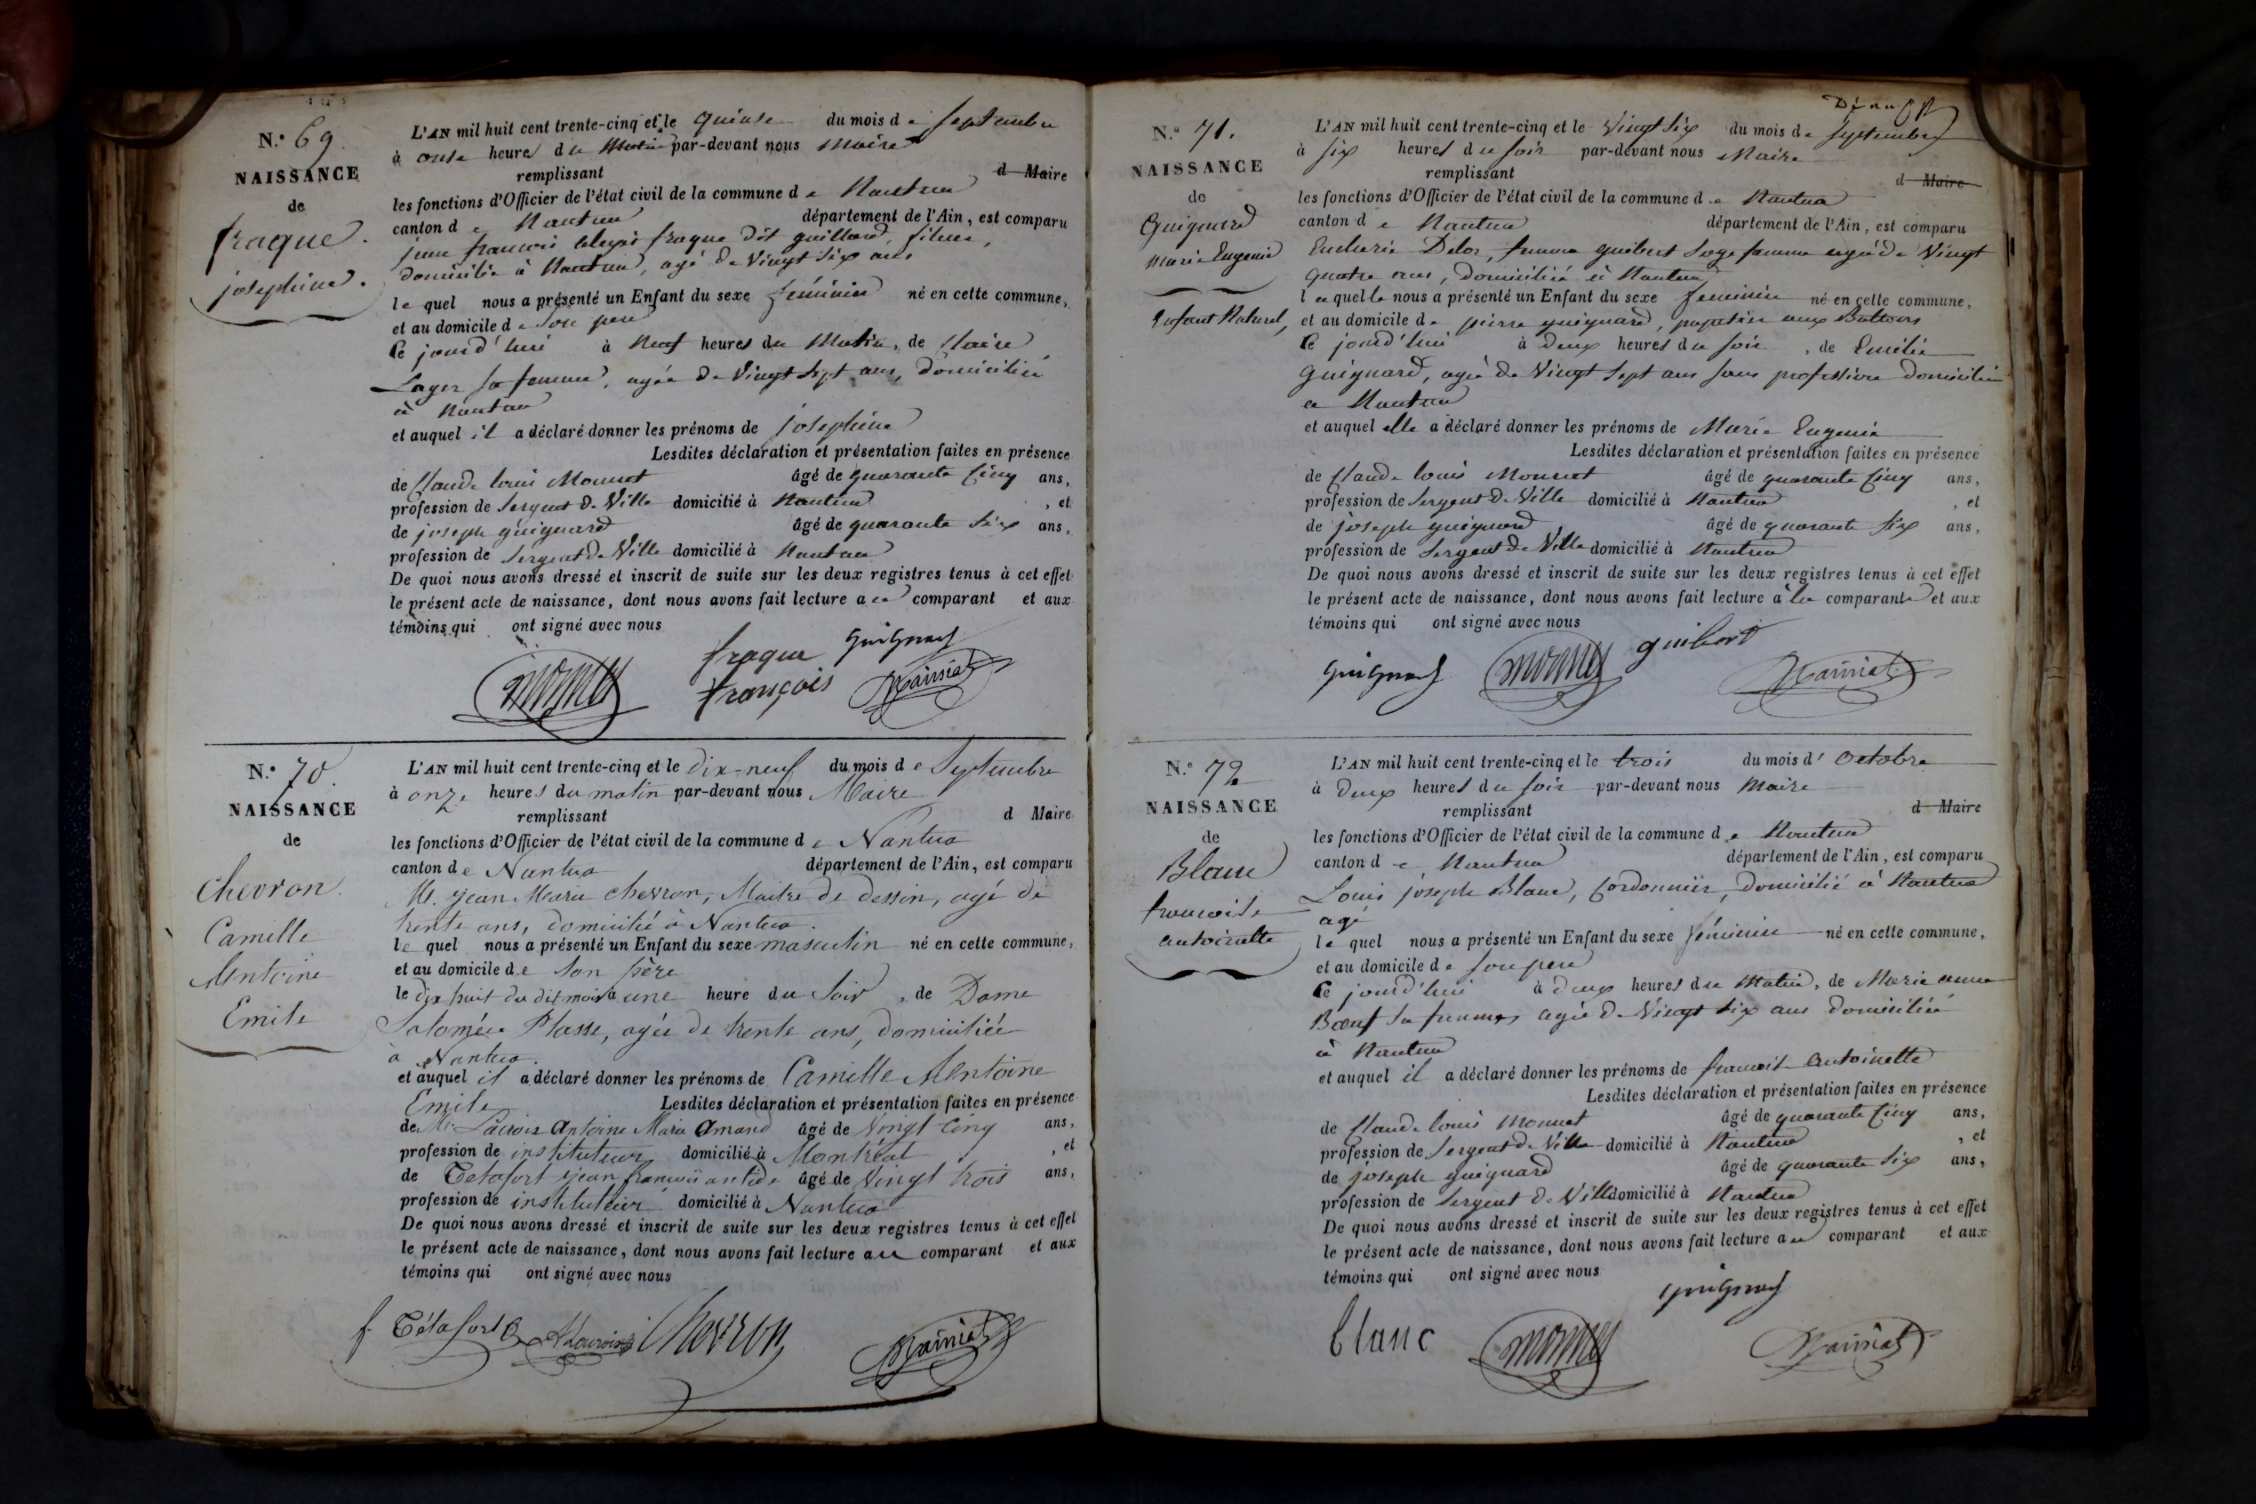 N.° 69.
NAISSANCE
de
fraque.
josephine.
L'AN mil huit cent trente-cinq et le quinse du mois de septembre
à onse heures du Matin par-devant nous Maire
remplissant d Maire
les fonctions d'Officier de l'état civil de la commune de Nantua
canton de Nantua département de l'Ain, est comparu
françois fraque dit guillard,
domicilié à Nantua, agé de Vingt Six ans
le quel nous a présenté un Enfant du sexe féminin né en cette commune,
et au domicile de son pere
Ce jourd'hui à Neuf heures du Matin, de Claire
Lager sa femme, agée de Vingt Sept ans, domiciliée
à Nantua
et auquel il a déclaré donner les prénoms de josephine
Lesdites déclaration et présentation faites en présence
de Claude louis Monnet âgé de quarante Cinq ans,
profession de Sergent de Ville domicilié à Nantua, et
de joseph guignard âgé de quarante Six ans,
profession de Sergent de Ville domicilié à Nantua
De quoi nous avons dressé et inscrit de suite sur les deux registres tenus à cet effet
le présent acte de naissance, dont nous avons fait lecture au comparant et aux
témoins qui ont signé avec nous
fraque Guignard
françois
N.° 70.
NAISSANCE
de
Chevron.
Camille
Antoine
Emile
L'AN mil huit cent trente-cinq et le dix-neuf du mois de Septembre
à onze heures du matin par-devant nous Maire
remplissant d Maire
les fonctions d'Officier de l'état civil de la commune de Nantua
canton de Nantua département de l'Ain, est comparu
M. Jean Marie Chevron, Maitre de dessin, agé de
trente ans, domicilié à Nantua.
le quel nous a présenté un Enfant du sexe masculin né en cette commune,
et au domicile de son père
le dix huit du dit mois à une heure du Soir, de Dame
Salomée Plasse, agée de trente ans, domiciliée
à Nantua.
et auquel il a déclaré donner les prénoms de Camille Antoine
Emile Lesdites déclaration et présentation faites en présence
de Mr Lacroix Antoine Marie Amand âgé de Vingt Cinq ans,
profession de instituteur domicilié à Montréal, et
de Tétafort Jean françois antide âgé de Vingt trois ans,
profession de instituteur domicilié à Nantua
De quoi nous avons dressé et inscrit de suite sur les deux registres tenus à cet effet
le présent acte de naissance, dont nous avons fait lecture au comparant et aux
témoins qui ont signé avec nous
f Tétafort ALacroix Chevron
N.° 71.
NAISSANCE
de
Guignard
Marie Eugenie
Enfant Naturel
L'AN mil huit cent trente-cinq et le Vingt Six du mois de Septembre
à Six heures du soir par-devant nous Maire
remplissant d Maire
les fonctions d'Officier de l'état civil de la commune de Nantua
canton de Nantua département de l'Ain, est comparu
femme guibert Sage femme agée de Vingt
quatre ans, domiciliée à Nantua
laquelle nous a présenté un Enfant du sexe feminin né en cette commune,
et au domicile de pierre guignard, papetier aux Battoirs
Ce jourd'hui à deux heures du soir, de Emélie
guignard, agée de Vingt Sept ans sans profession domiciliée
a Nantua
et auquel elle a déclaré donner les prénoms de Marie Eugenie
Lesdites déclaration et présentation faites en présence
de Claude louis Monnet âgé de quarante Cinq ans,
profession de Sergent de Ville domicilié à Nantua, et
de joseph guignard âgé de quarante Six ans,
profession de Sergent de Ville domicilié à Nantua
De quoi nous avons dressé et inscrit de suite sur les deux registres tenus à cet effet
le présent acte de naissance, dont nous avons fait lecture à la comparante et aux
témoins qui ont signé avec nous
Guignard guibert
N.° 72
NAISSANCE
de
Blanc
francoise
antoinette
L'AN mil huit cent trente-cinq et le trois du mois d'octobre
à deux heures du soir par-devant nous Maire
remplissant d Maire
les fonctions d'Officier de l'état civil de la commune de Nantua
canton de Nantua département de l'Ain, est comparu
Louis joseph Blanc, Cordonnier, domicilié à Nantua
agé
le quel nous a présenté un Enfant du sexe féminin né en cette commune,
et au domicile de son pere
Ce jourd'hui à deux heures du Matin, de Marie anne
Bœuf sa femme, agée de Vingt Six ans domiciliée
à Nantua
et auquel il a déclaré donner les prénoms de francoise antoinette
Lesdites déclaration et présentation faites en présence
de Claude louis Monnet âgé de quarante Cinq ans,
profession de Sergent de Ville domicilié à Nantua, et
de joseph guignard âgé de quarante Six ans,
profession de Sergent de Ville domicilié à Nantua
De quoi nous avons dressé et inscrit de suite sur les deux registres tenus à cet effet
le présent acte de naissance, dont nous avons fait lecture au comparant et aux
témoins qui ont signé avec nous
Guignard
blanc